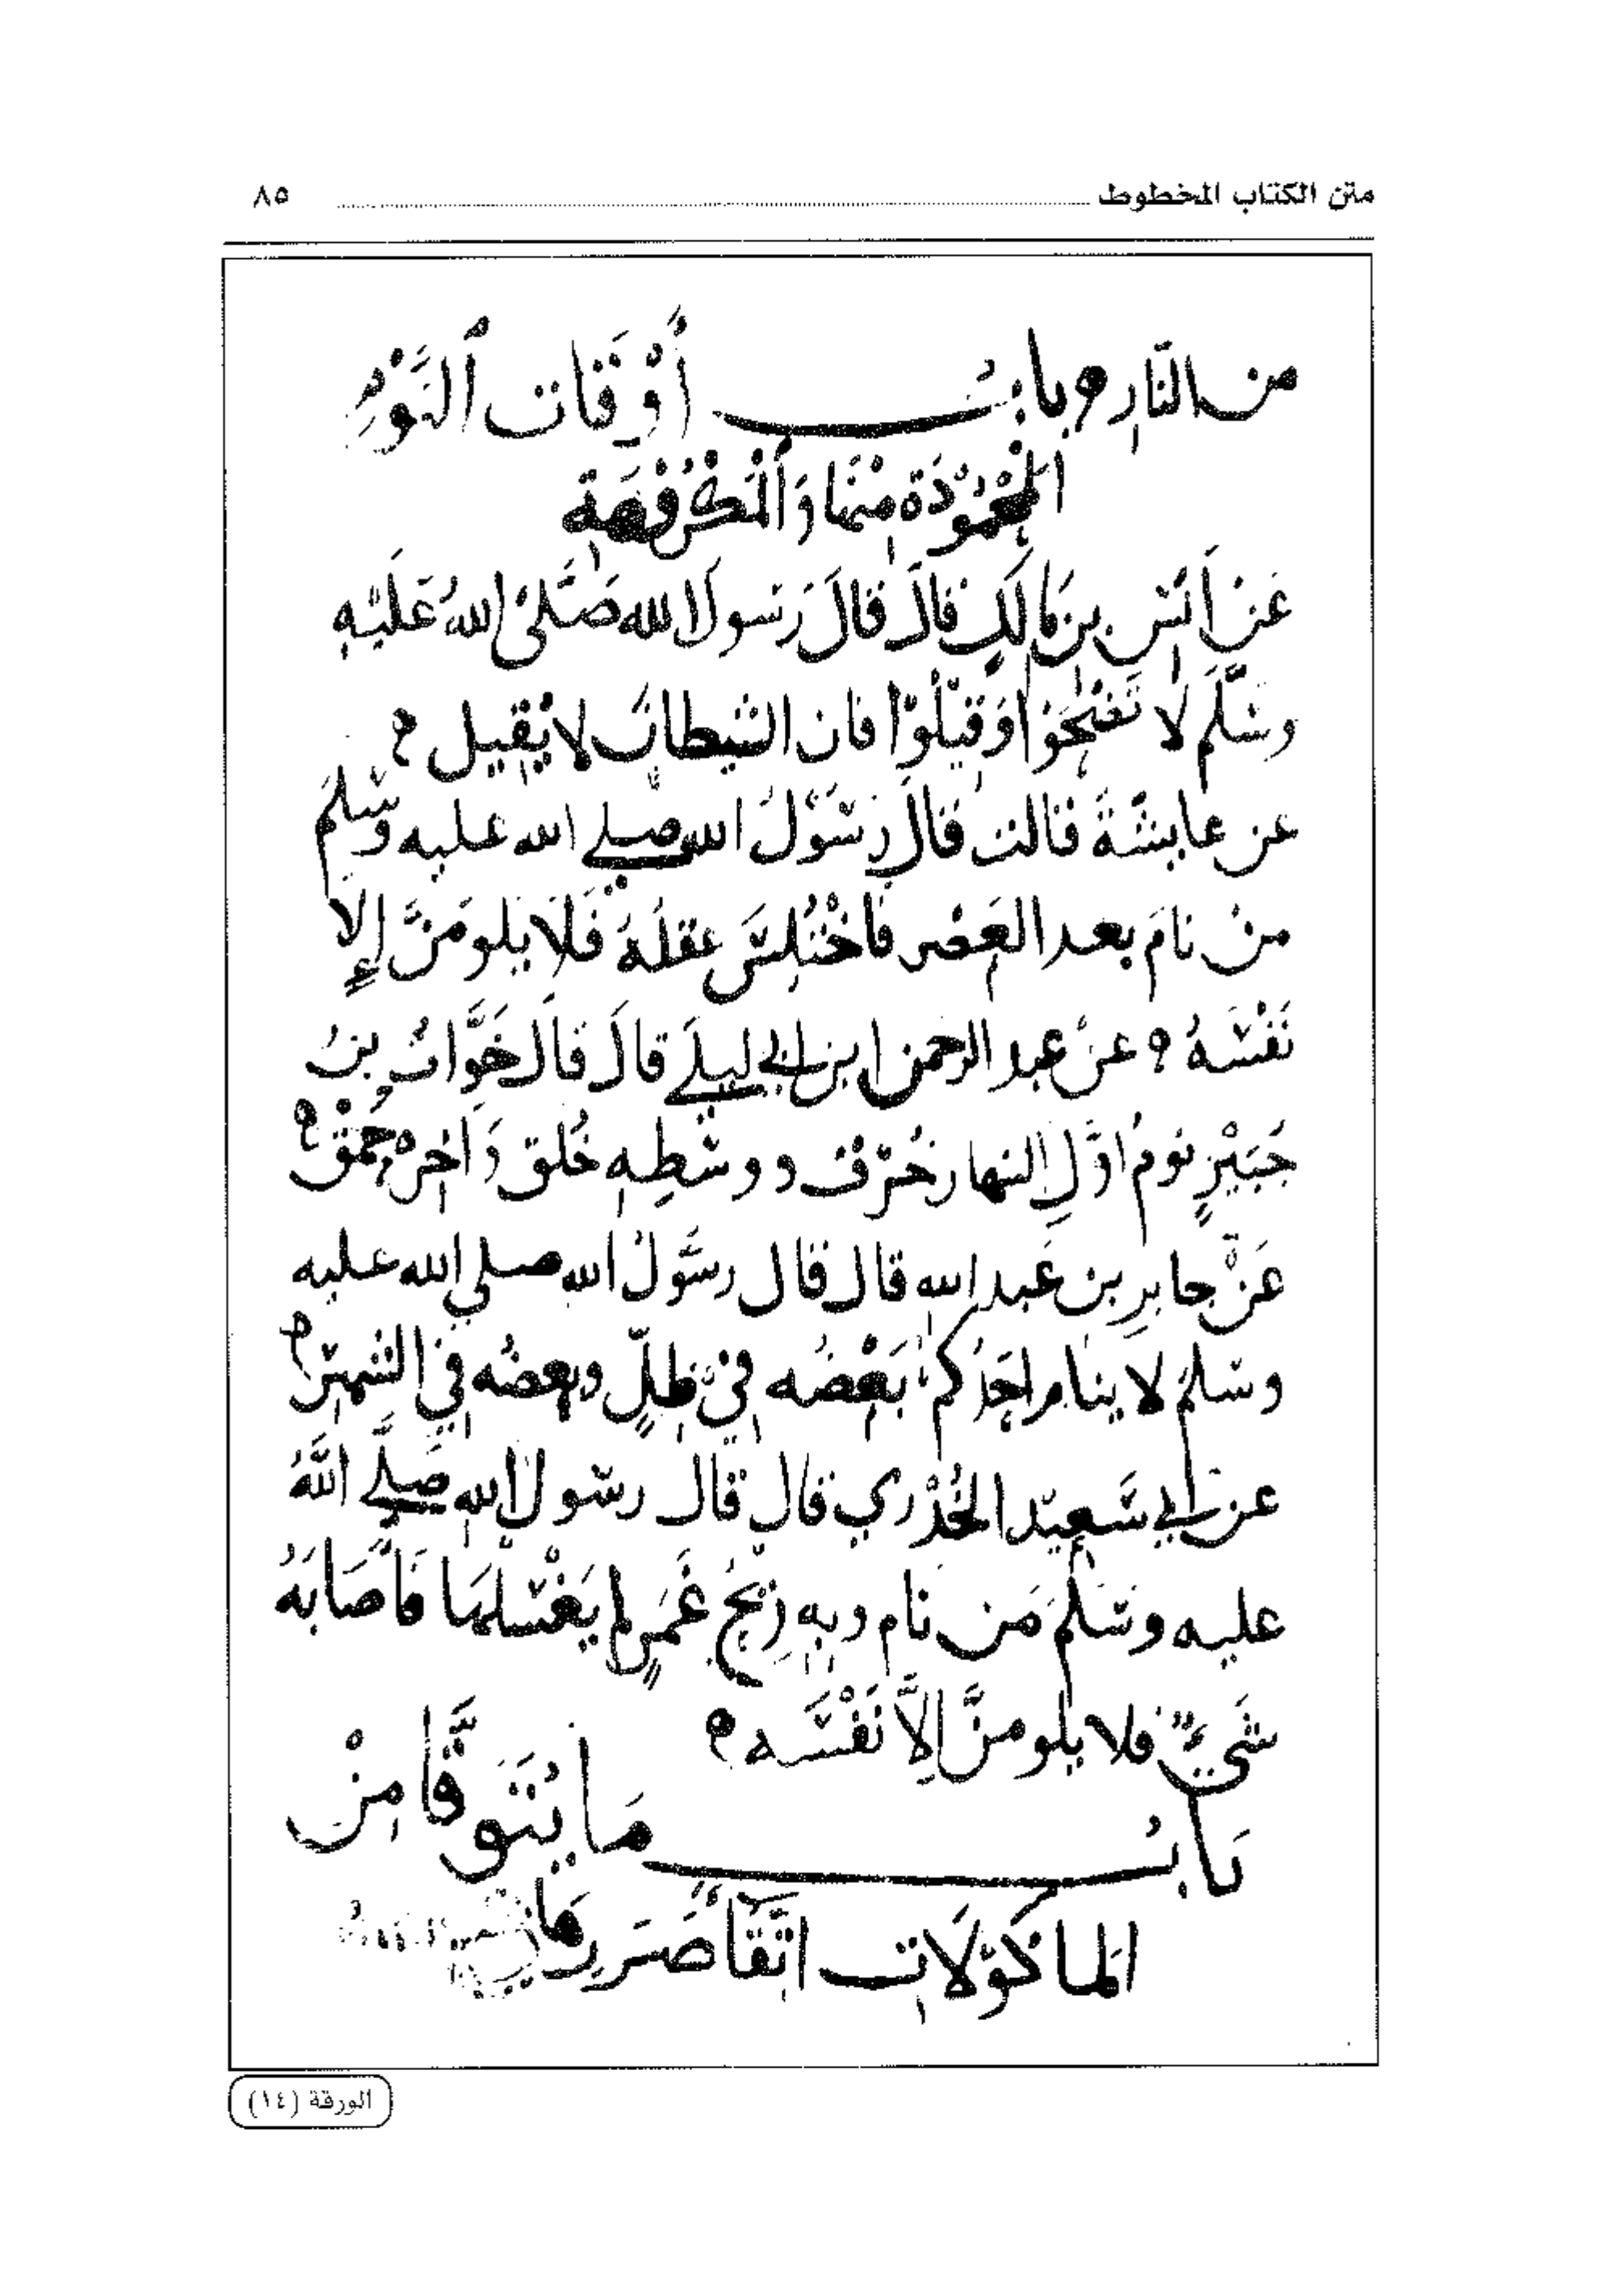 متن الكتاب المخطوط ٨٥
من النار ه باب أَوْقَات النَّوْمِ
المَحْمُوْدَة مِنْهَا وَالْمَكْرُوْهَة
عَنْ اَنَسِ بن مَالَكٍ قالَ قالَ رَسولُ الله صَلَّى اللهُ عَلَيْهِ
وسَلَّمَ لَا تَصْبَحُوْا وَقِيْلُوْا فان الشيطانَ لا يُقِيل ه
عن عايشَةَ قالت قالَ رسُوْلُ الله صلى الله عليه وسلمَ
منْ نامَ بعد العَصْر فَاخْتُلِسَ عقلَهُ فَلَا يَلُومَنَّ إِلَّا
نَفْسَهُ ه عنْ عبد الرحمن ابن ابى ليلى قالَ قالَ خَوَّاتُ بنُ
جُبَيْرٍ نومُ اوَّلِ النهار خُرْق ووسَطِهِ خُلق وَاخرهُ حُمْق ه
عَنْ جابرِ بن عَبد الله قال قال رسُولُ الله صلي الله عليه
وسَلمَ لا ينام احَدُكم بَعْضُه فِيْ ظِلٍّ وبعضُه فِي الشمس ه
عن ابي سَعِيْد الخُدْري قال قال رسُول الله صَلَّى اللَّهُ
عليه وسَلمَ مَن نام وبِهِ رِيْحُ غَمَرٍ لم يَغْسلهَا فَأَصَابَهُ
شَيْءٌ فلا يلومنَّ إِلَّا نَفْسَه ه
بَابُ مَا يُتَوَقَّا مِنْ
المأكوْلَات اتّقَاءَ ضَرَرِ
الورقة (١٤)